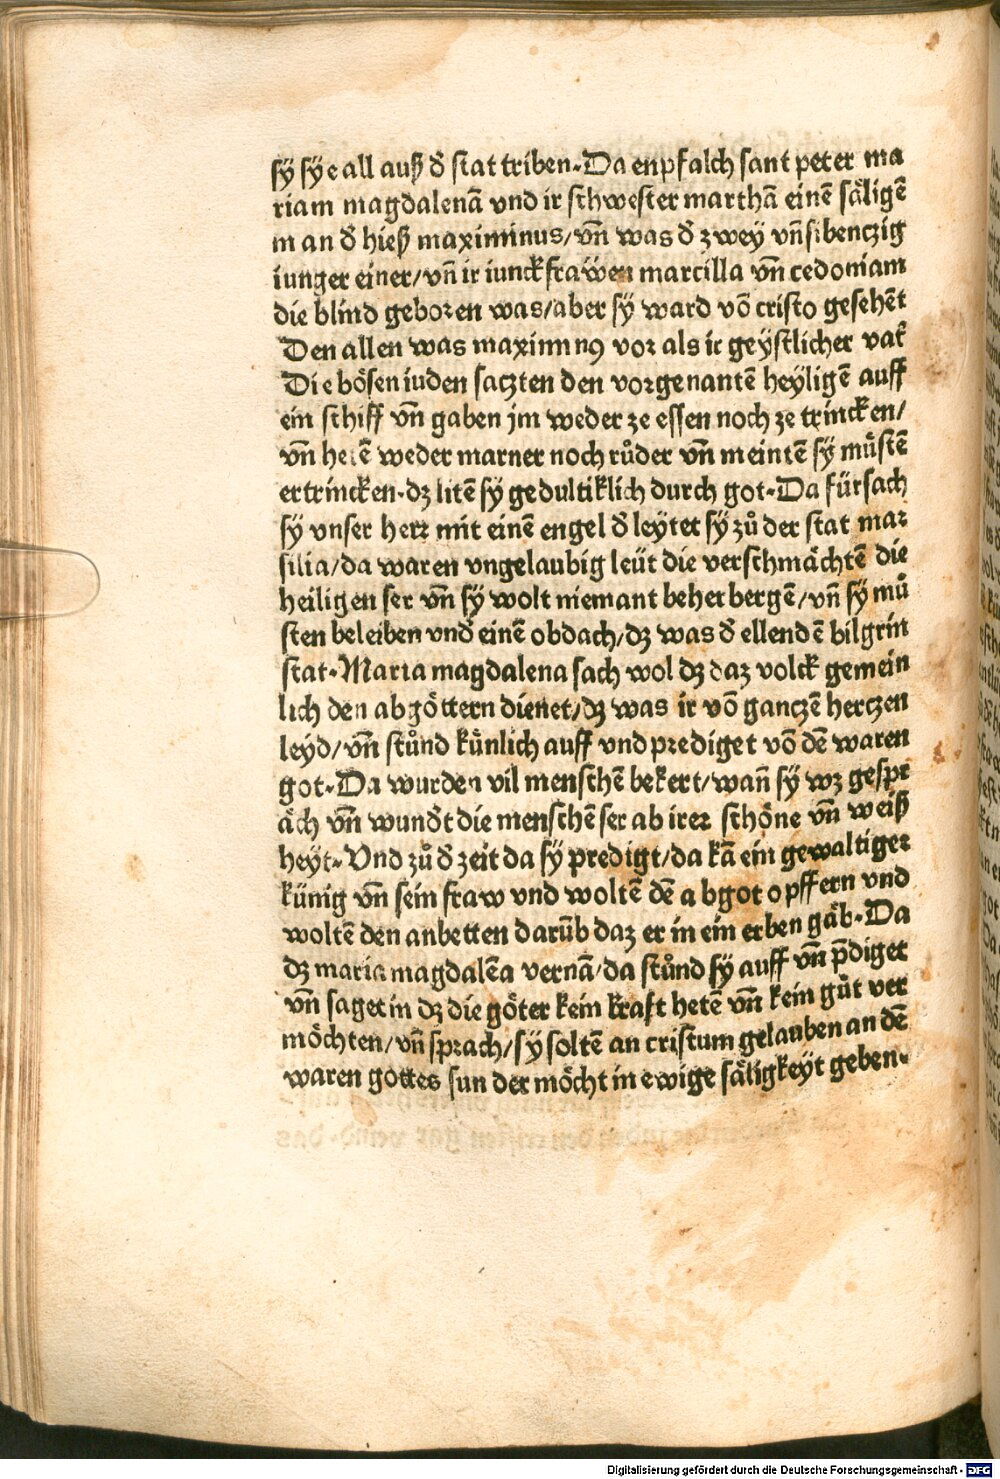 sÿ sÿe all auß đ stat triben. Da enpfalch sant peter ma
riam magdalenā vnd ir schwester marthā einē säligē
man đ hieß maximinus/ vn̄ was đ zweÿ vn̄ sibenczig
iunger einer/ vn̄ ir iunckfraẅen marcilla vn̄ cedoniam
die blind geboren was/ aber sÿ ward vō cristo gesehēt
Den allen was maximinꝰ vor als ir geÿstlicher vat̄
Die bösen iuden saczten den vorgenantē heÿligē auff
ein schiff vn̄ gaben jm weder ze essen noch ze trincken/
vn̄ hetē weder marner noch růder vn̄ meintē sÿ müstē
ertrincken. dz litē sÿ gedultiklich durch got. Da fürsach
sÿ vnser herr mit einē engel đ leÿtet sÿ zů der stat mar
silia/ da waren vngelaubig leüt die verschmächtē die
heiligen ser vn̄ sÿ wolt niemant beherbergē/ vn̄ sÿ mů
sten beleiben vnđ einē obdach/ dz was đ ellendē bilgrin
stat. Maria magdalena sach wol dz daz volck gemein
lich den abgöttern dienet/ dz was ir vō ganczē herczen
leyd/ vn̄ stůnd künlich auff vnd prediget vō dē waren
got. Da wurden vil menschē bekert/ wan̄ sÿ wz gespr
äch vn̄ wundt̄ die menschē ser ab irer schöne vn̄ weiß
heyt. Vnd zů đ zeit da sÿ predigt/ da kā ein gewaltiger
künig vn̄ sein fraw vnd woltē dē abgot opffern vnd
woltē den anbetten darūb daz er in ein erben gäb. Da
dz maria magdalēa vernā/ da stůnd sÿ auff vn̄ p̄diget
vn̄ saget in dz die göter kein kraft hetē vn̄ kein gůt ver
möchten/ vn̄ sprach/ sÿ soltē an cristum gelauben an dē
waren gottes sun der möcht in ewige säligkeÿt geben.
Digitalisierung gefördert durch die Deutsche Forschungsgemeinschaft - DFG